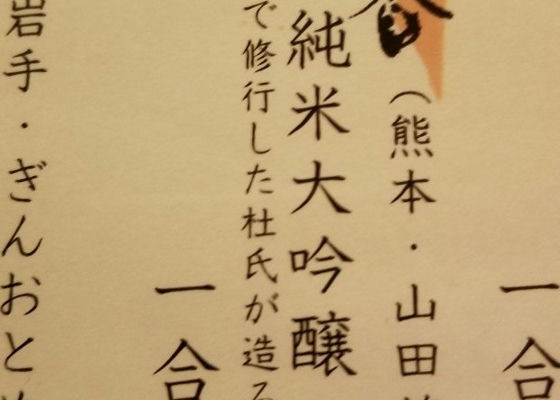 一合
（熊本・山田
純米大吟醸
で修行した杜氏が造る
一合
岩手・ぎんおと